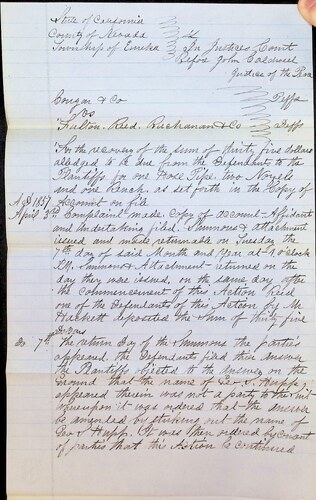 State of California
County of Nevada } ss
Township of Eureka } In Justices Court
Before John Caldwell
Justice of the Peace
Cougar & Co Plffs
vs
Fulton Reed Buchanan & Co Deffs
For the recovery of the sum of thirty five dollars
alledged to be due from the Defendants to the
Plaintiffs for one Hose Pipe two Nozels
and one Rench, as set forth in the Copy of
Account on file
AD 1857
April 3rd Complaint made. Copy of account - Affidavit
and Undertaking filed. Summons & attachment
issued and made returnable on Tuesday the
7th day of said Month and Year at 1, O'clock
P.M., Summons & Attachment returned on the
day they were issued, on the same day after
the Commencement of this Action Reid
one of the Defendants of this Action by Mr
Hackett deposited the Sum of thirty five
Dollars
Do 7th the return Day of the Summons the parties
appeared, the Defendants filed their answer
the Plaintiffs objected to the answer on the
Ground that the name of Geo S. Hupp
appeared therein was not a party to the Suit
whereupon it was ordered that the answer
be amended by striking out the name of
Geo S Hupp. It was then ordered by consent
of parties that this Action be continued